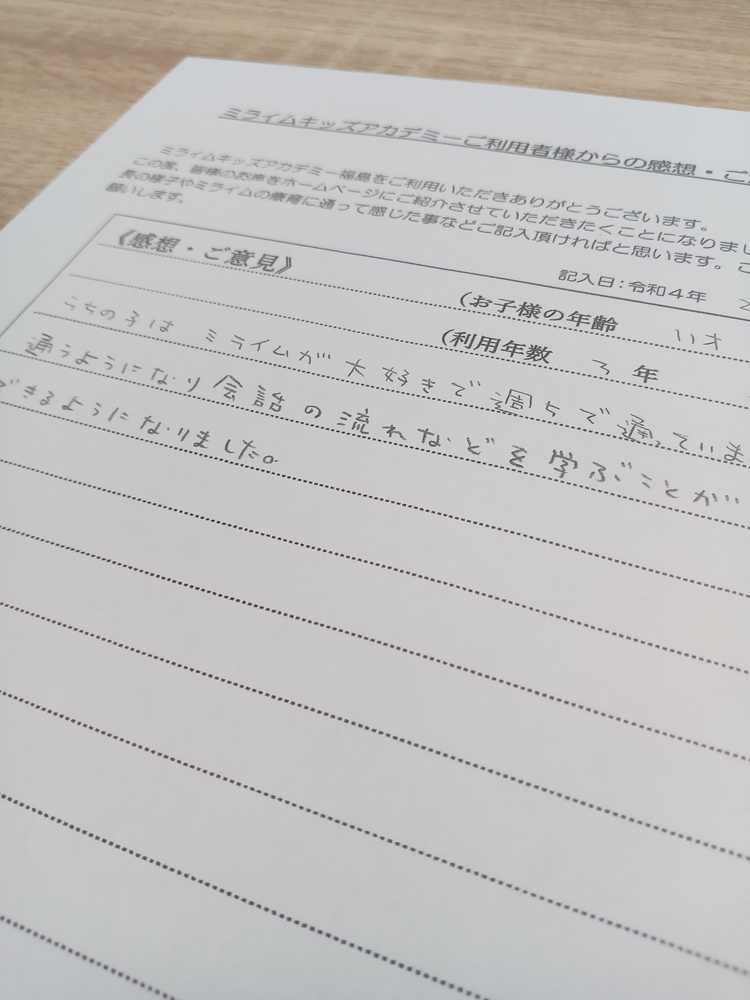 ミライムキッズアカデミーご利用者様からの感想・ご
ミライムキッズアカデミー福島をご利用いただきありがとうございます。
この度、皆様のお声をホームページにご紹介させていただきたくことになりまし
長の様子やミライムの療育に通って感じた事などご記入頂ければと思います。ご
願いします。
記入日：令和4年 2
《感想・ご意見》
(お子様の年齢 11才
(利用年数 3 年
うちの子は ミライムが 大好きで 週5で通っていま
通うようになり会話の流れなどを学ぶことが
できるようになりました。